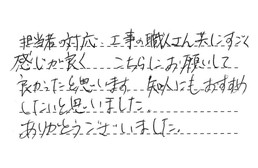 担当者の対応…工事の職人さん共にすごく
感じが良く　こちらにお願いして
良かったと思います　知人にもおすすめ
したいと思いました。
ありがとうございました。